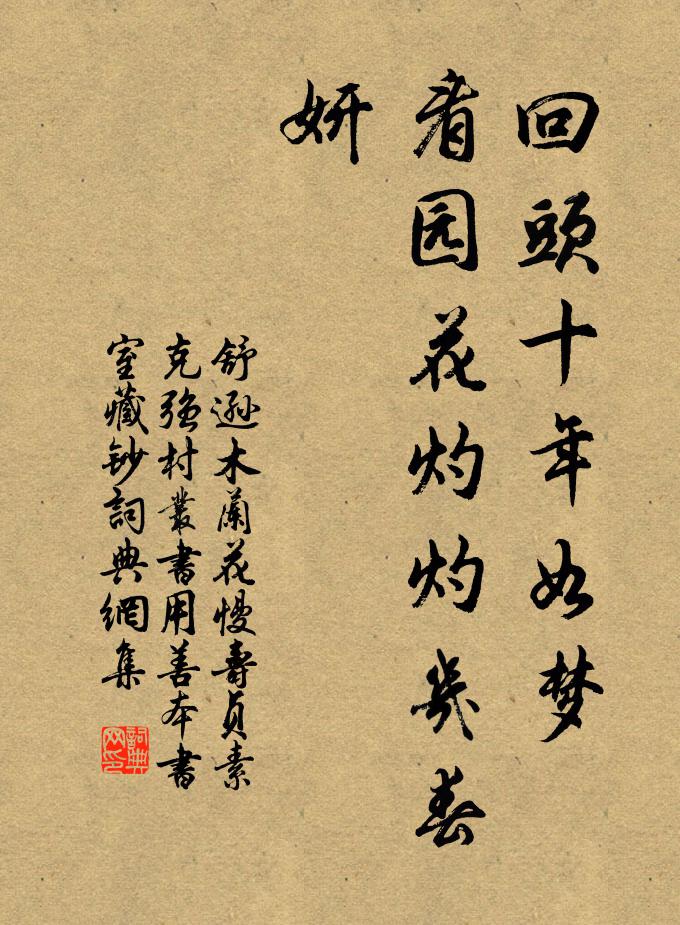 回頭十年如梦
看园花灼灼幾春
妍
舒遜木蘭花慢壽貞素
克強村叢書用善本書
室藏鈔詞典網集
詞典网印